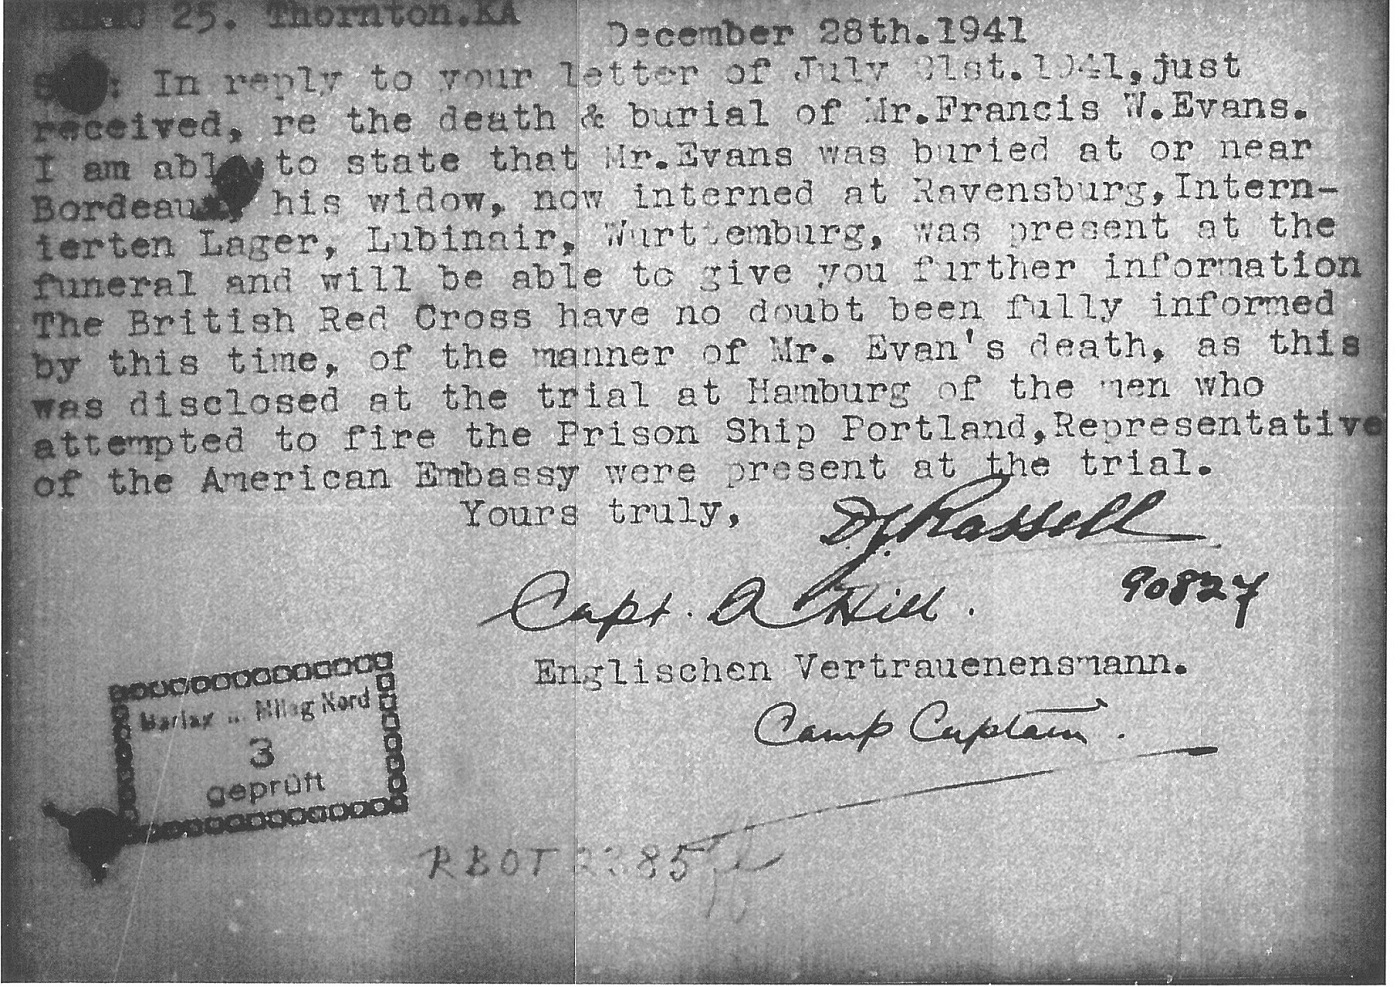 25. Thornton.KA
December 28th.1941
: In reply to your letter of July 21st.1941,just
received, re the death & burial of Mr.Francis W.Evans.
I am able to state that Mr.Evans was buried at or near
Bordeaux, his widow, now interned at Ravensburg,Intern-
ierten Lager, Lubinair, Wurttemburg, was present at the
funeral and will be able to give you further information
The British Red Cross have no doubt been fully informed
by this time, of the manner of Mr. Evan's death, as this
was disclosed at the trial at Hamburg of the men who
attempted to fire the Prison Ship Portland,Representative
of the American Embassy were present at the trial.
Yours truly,
90827
Capt. A Hill.
Englischen Vertrauenensmann.
Camp Captain.
Marlag u. Milag Nord
3
geprüft
RBOT